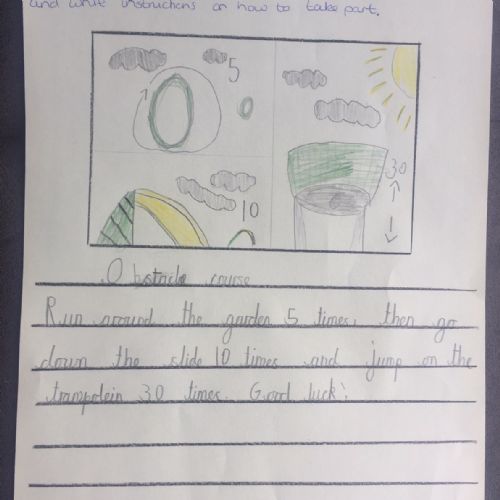 and write instructions on how to take part.
5
30
10
Obstacle course
Run around the garden 5 times, then go
down the slide 10 times and jump on the
trampolein 30 times. Good luck!